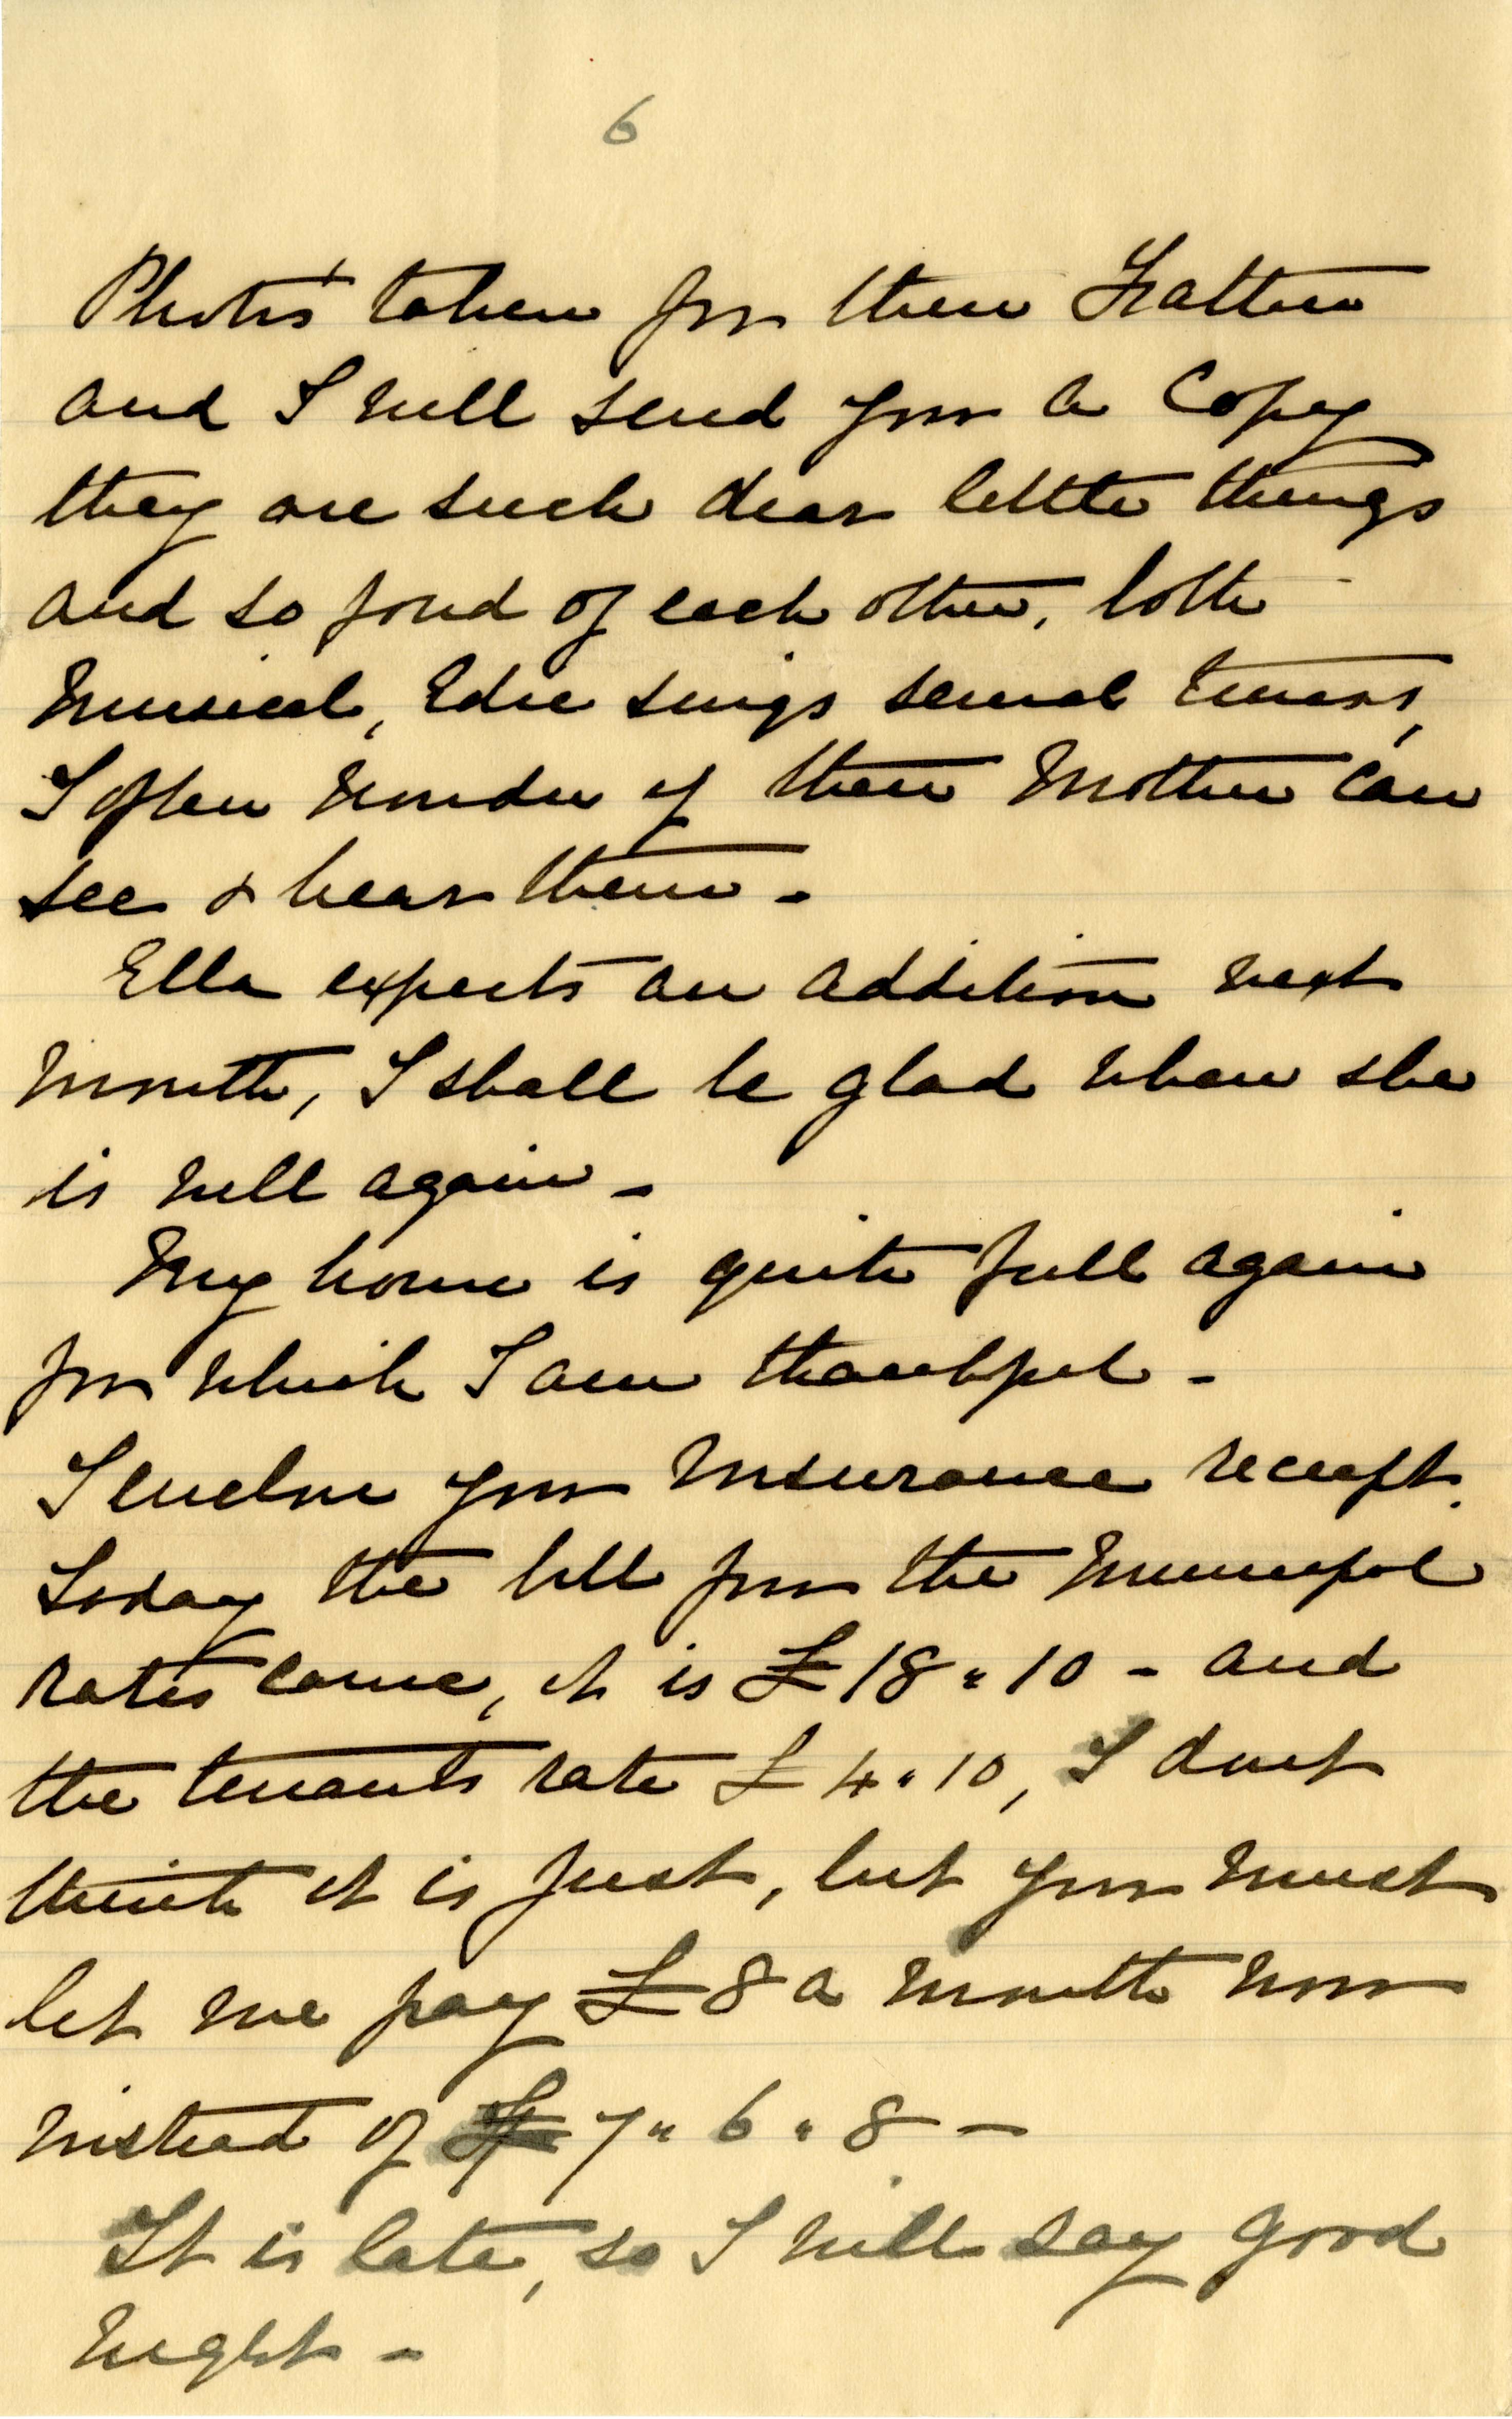 6
Photos taken for their Father
and I will send you a Copy
they are such dear little things
and so fond of each other, both
musical, Edie sings several tunes,
I often wonder if their Mother can
see & hear them -
Ella expects an addition next
month, I shall be glad when she
is well again -
My home is quite full again
for which I am thankful -
I enclose your Insurance receipt.
Today the bill from the Municipal
rates came, it is £18"10 - and
the tenants rate £4"10, I dont
think it is just, but you must
let me pay £8 a month now
instead of £7"6"8 -
It is late, so I will say good
night -